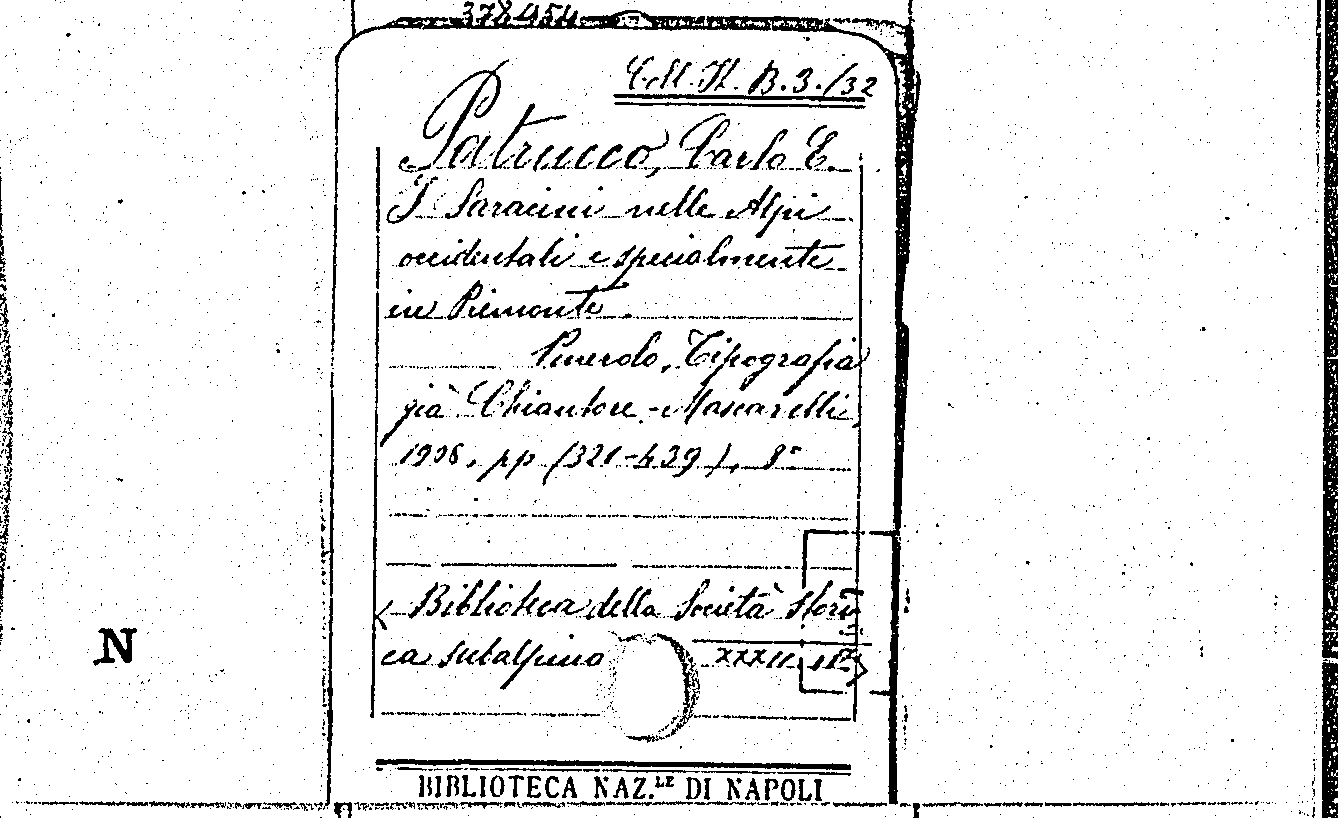 378454
Coll. It. B. 3. /32
Patrucco, Carlo E.
I Saracini nelle Alpi
occidentali e specialmente
in Piemonte.
Pinerolo, Tipografia
già Chiantore-Mascarelli,
1908, pp (321-439), 8°
Biblioteca della Società stori
ca subalpina XXXII
N
BIBLIOTECA NAZ.LE DI NAPOLI